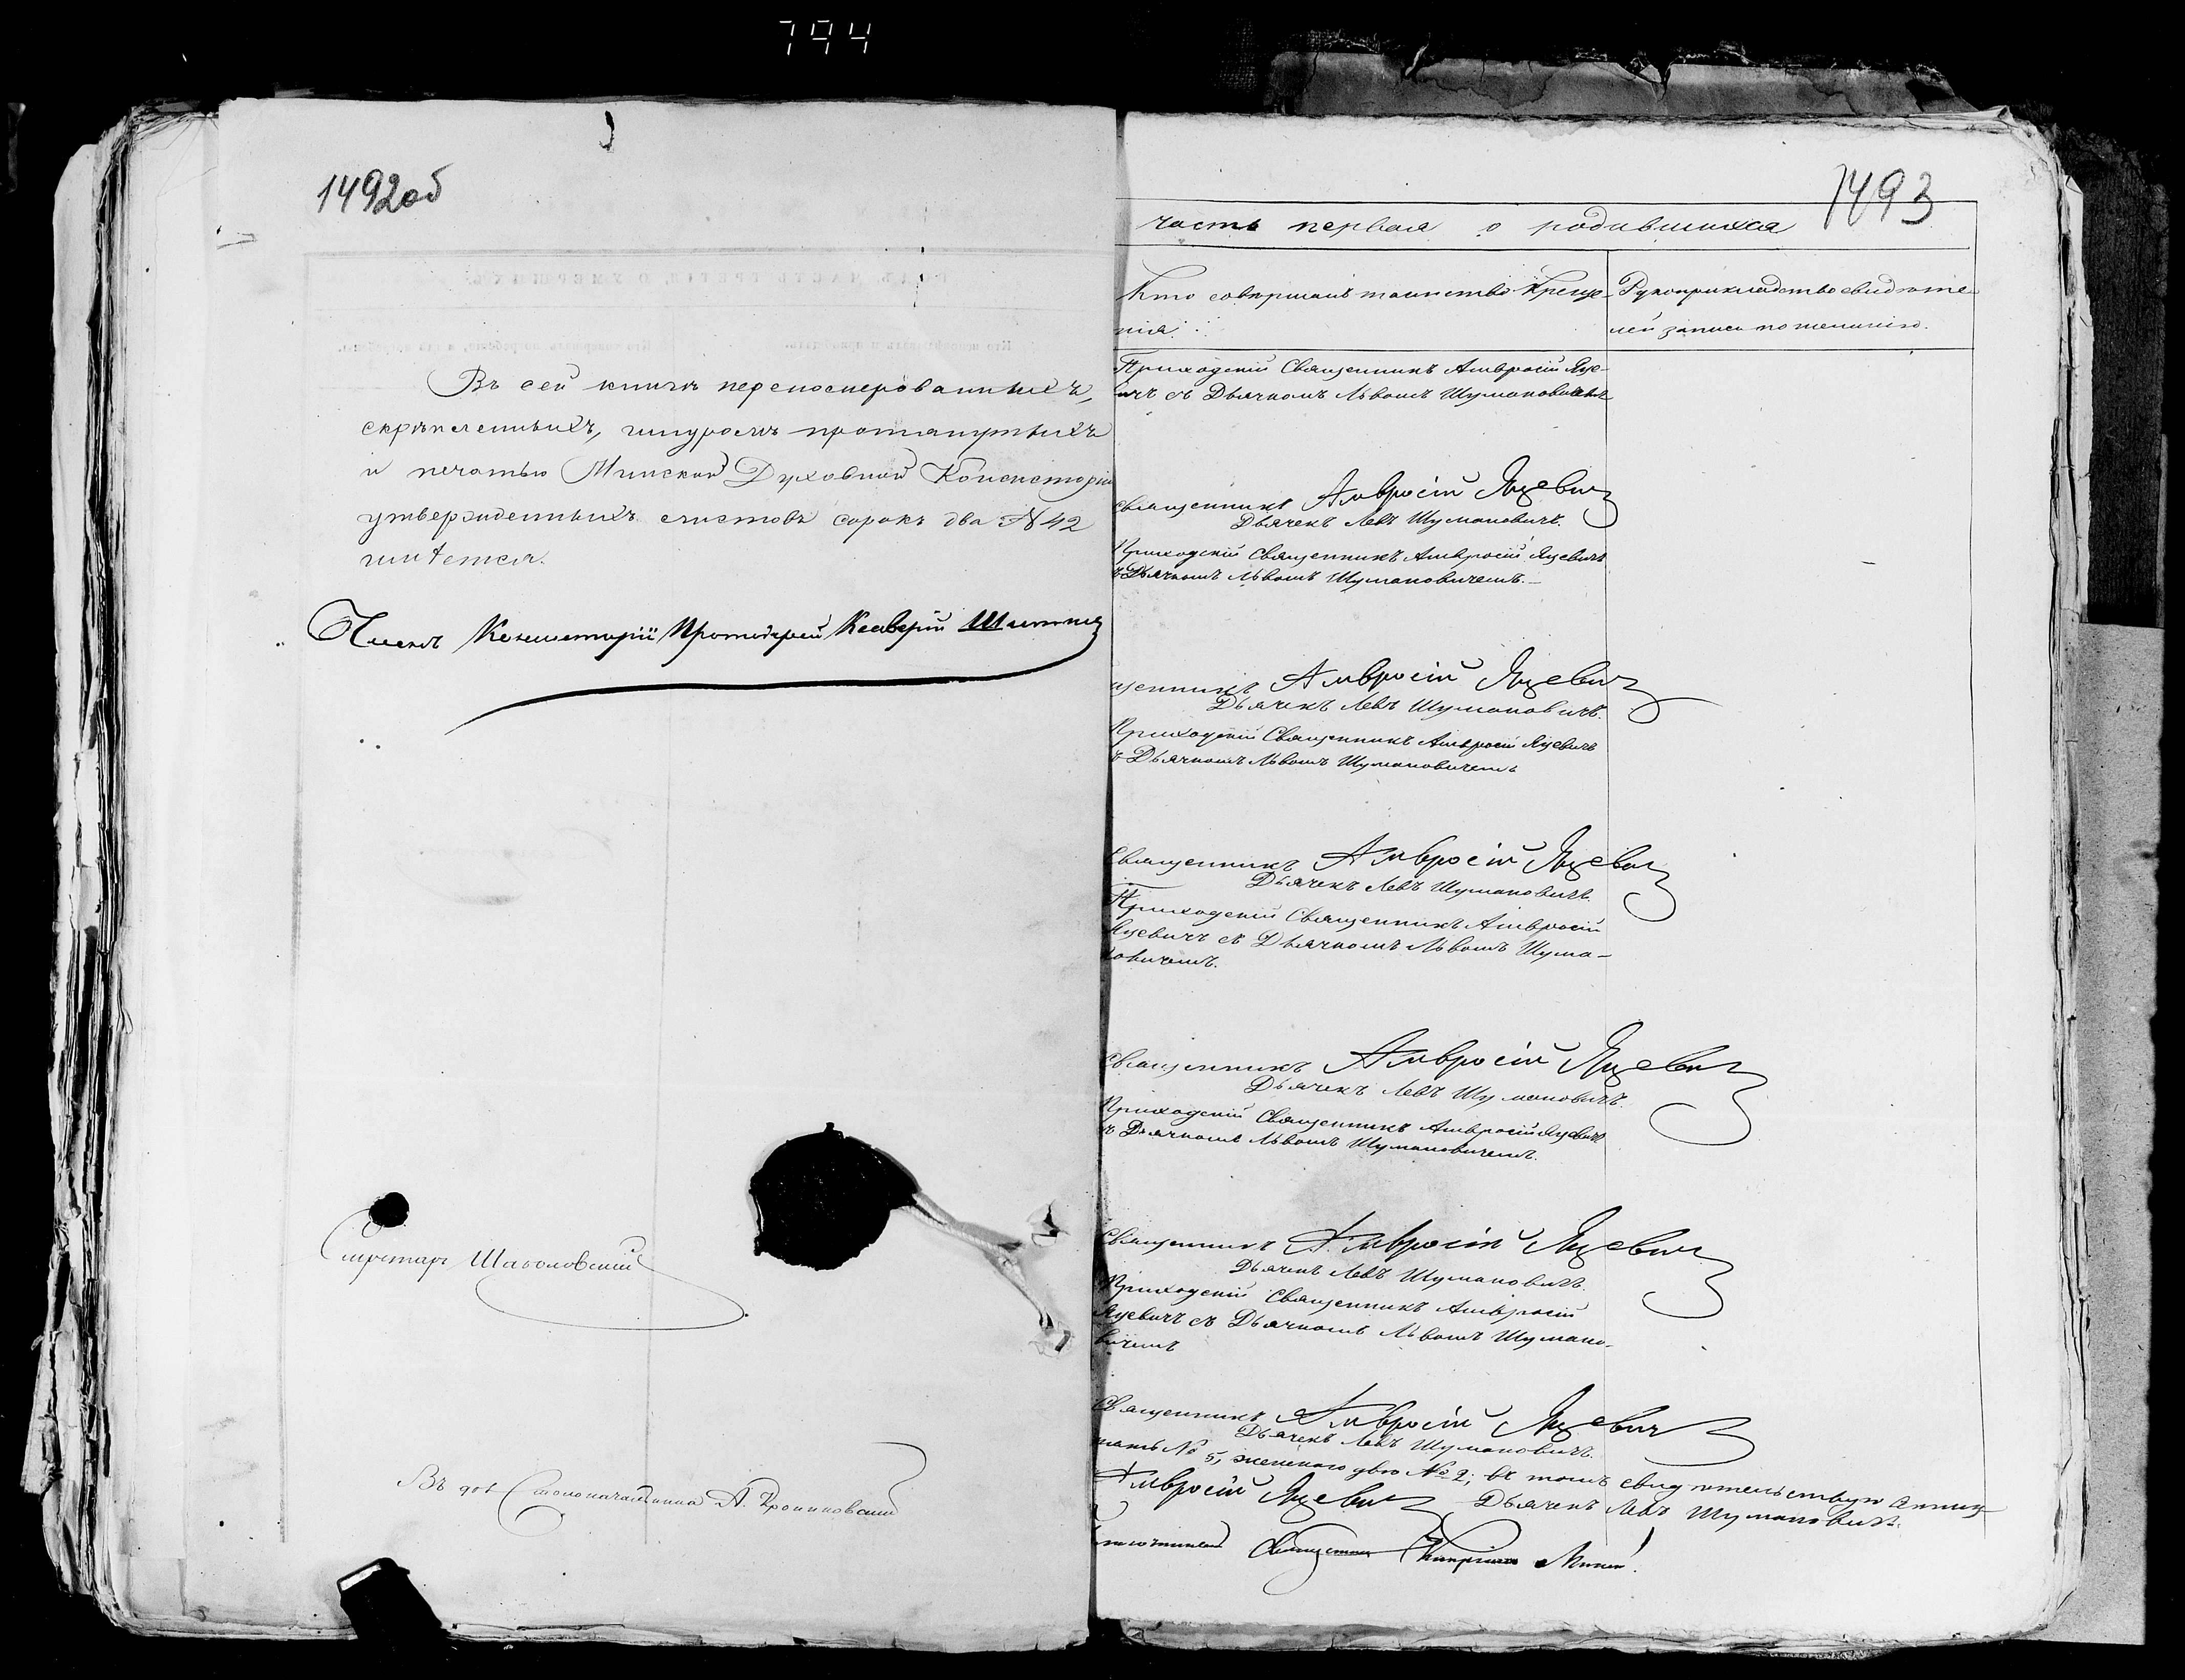 794
1492об
Въ сей книгѣ перенумерованныхъ,
скрѣпленныхъ, шнуромъ протянутыхъ
и печатью Минской Духовной Консисторіи
утвержденныхъ листовъ сорокъ два N 42
числится.
Членъ Консисторіи Протоіерей
Секретарь
Въ дол. Столоначальника А.
1493
часть первая о родившихся
Кто совершалъ таинство Креще-
нія
Рукоприкладство свидѣте-
лей записи по желанію.
Приходскій Священникъ Амвросій Яце-
вичъ съ Дьячкомъ Львомъ Шумановичемъ
священникъ Амвросій Яцевичъ
Дьячекъ Левъ Шумановичъ.
Приходскій Священникъ Амвросій Яцевичъ
съ Дьячкомъ Львомъ Шумановичемъ.
щенникъ Амвросій Яцевичъ
Дьячекъ Левъ Шумановичъ.
Приходскій Священникъ Амвросій Яцевичъ
съ Дьячкомъ Львомъ Шумановичемъ
Священникъ Амвросій Яцевичъ
Дьячекъ Левъ Шумановичъ.
Приходскій Священникъ Амвросій
Яцевичъ съ Дьячкомъ Львомъ Шума-
новичемъ.
Священникъ Амвросій Яцевичъ
Дьячекъ Левъ Шумановичъ.
Приходскій Священникъ Амвросій Яцевичъ
съ Дьячкомъ Львомъ Шумановичемъ.
Священникъ Амвросій Яцевичъ
Дьячекъ Левъ Шумановичъ.
Приходскій Священникъ Амвросій
Яцевичъ съ Дьячкомъ Львомъ Шумано-
вичемъ
Священникъ Амвросій Яцевичъ
Дьячекъ Левъ Шумановичъ.
№ 5, женскаго двѣ № 2; въ томъ свидѣтельствуя
Амвросій Яцевичъ Дьячекъ Левъ Шумановичъ.
Священникъ